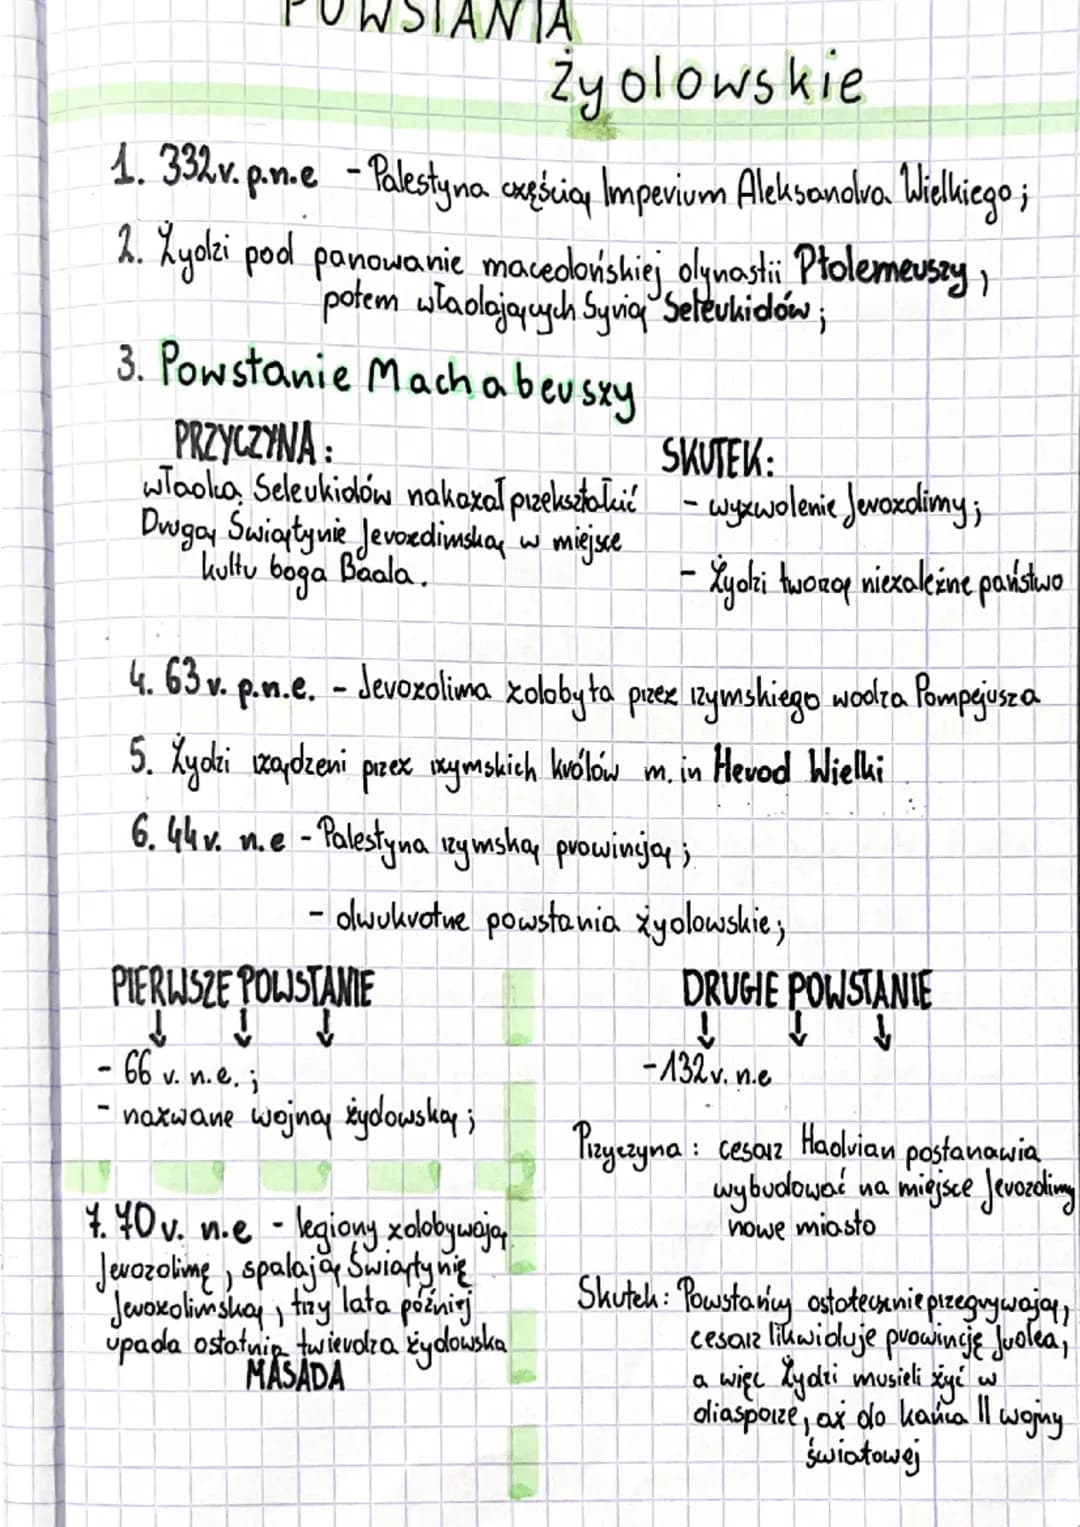 POWSTANIA
żydowskie
1. 332 r. p.n.e - Palestyna częścią Imperium Aleksandra Wielkiego;
2. Żydzi pod panowanie macedońskiej dynastii Ptolemeuszy,
potem władających Syrią Seleukidów;
3. Powstanie Machabeuszy
PRZYCZYNA:
władca Seleukidów nakazał przekształcić
Drugą Świątynie Jerozolimską w miejsce
kultu boga Baala.
SKUTEK:
- wyzwolenie Jerozolimy;
- Żydzi tworzą niezależne państwo
4. 63 r. p.n.e. - Jerozolima zdobyta przez rzymskiego wodza Pompejusza
5. Żydzi rządzeni przez rzymskich królów m.in Herod Wielki
6. 44 r. n.e - Palestyna rzymską prowincją;
- dwukrotne powstania żydowskie;
PIERWSZE POWSTANIE
- 66 r. n.e. ;
- nazwane wojną żydowską;
7. 70 r. n.e - legiony zdobywają
Jerozolimę, spalają Świątynię
Jerozolimską, trzy lata później
upada ostatnia twierdza żydowska
MASADA
DRUGIE POWSTANIE
- 132 r. n.e
Przyczyna: cesarz Hadrian postanawia
wybudować na miejsce Jerozolimy
nowe miasto
Skutek: Powstańcy ostatecznie przegrywają,
cesarz likwiduje prowincję Judea,
a więc Żydzi musieli żyć w
diasporze, aż do końca II wojny
światowej